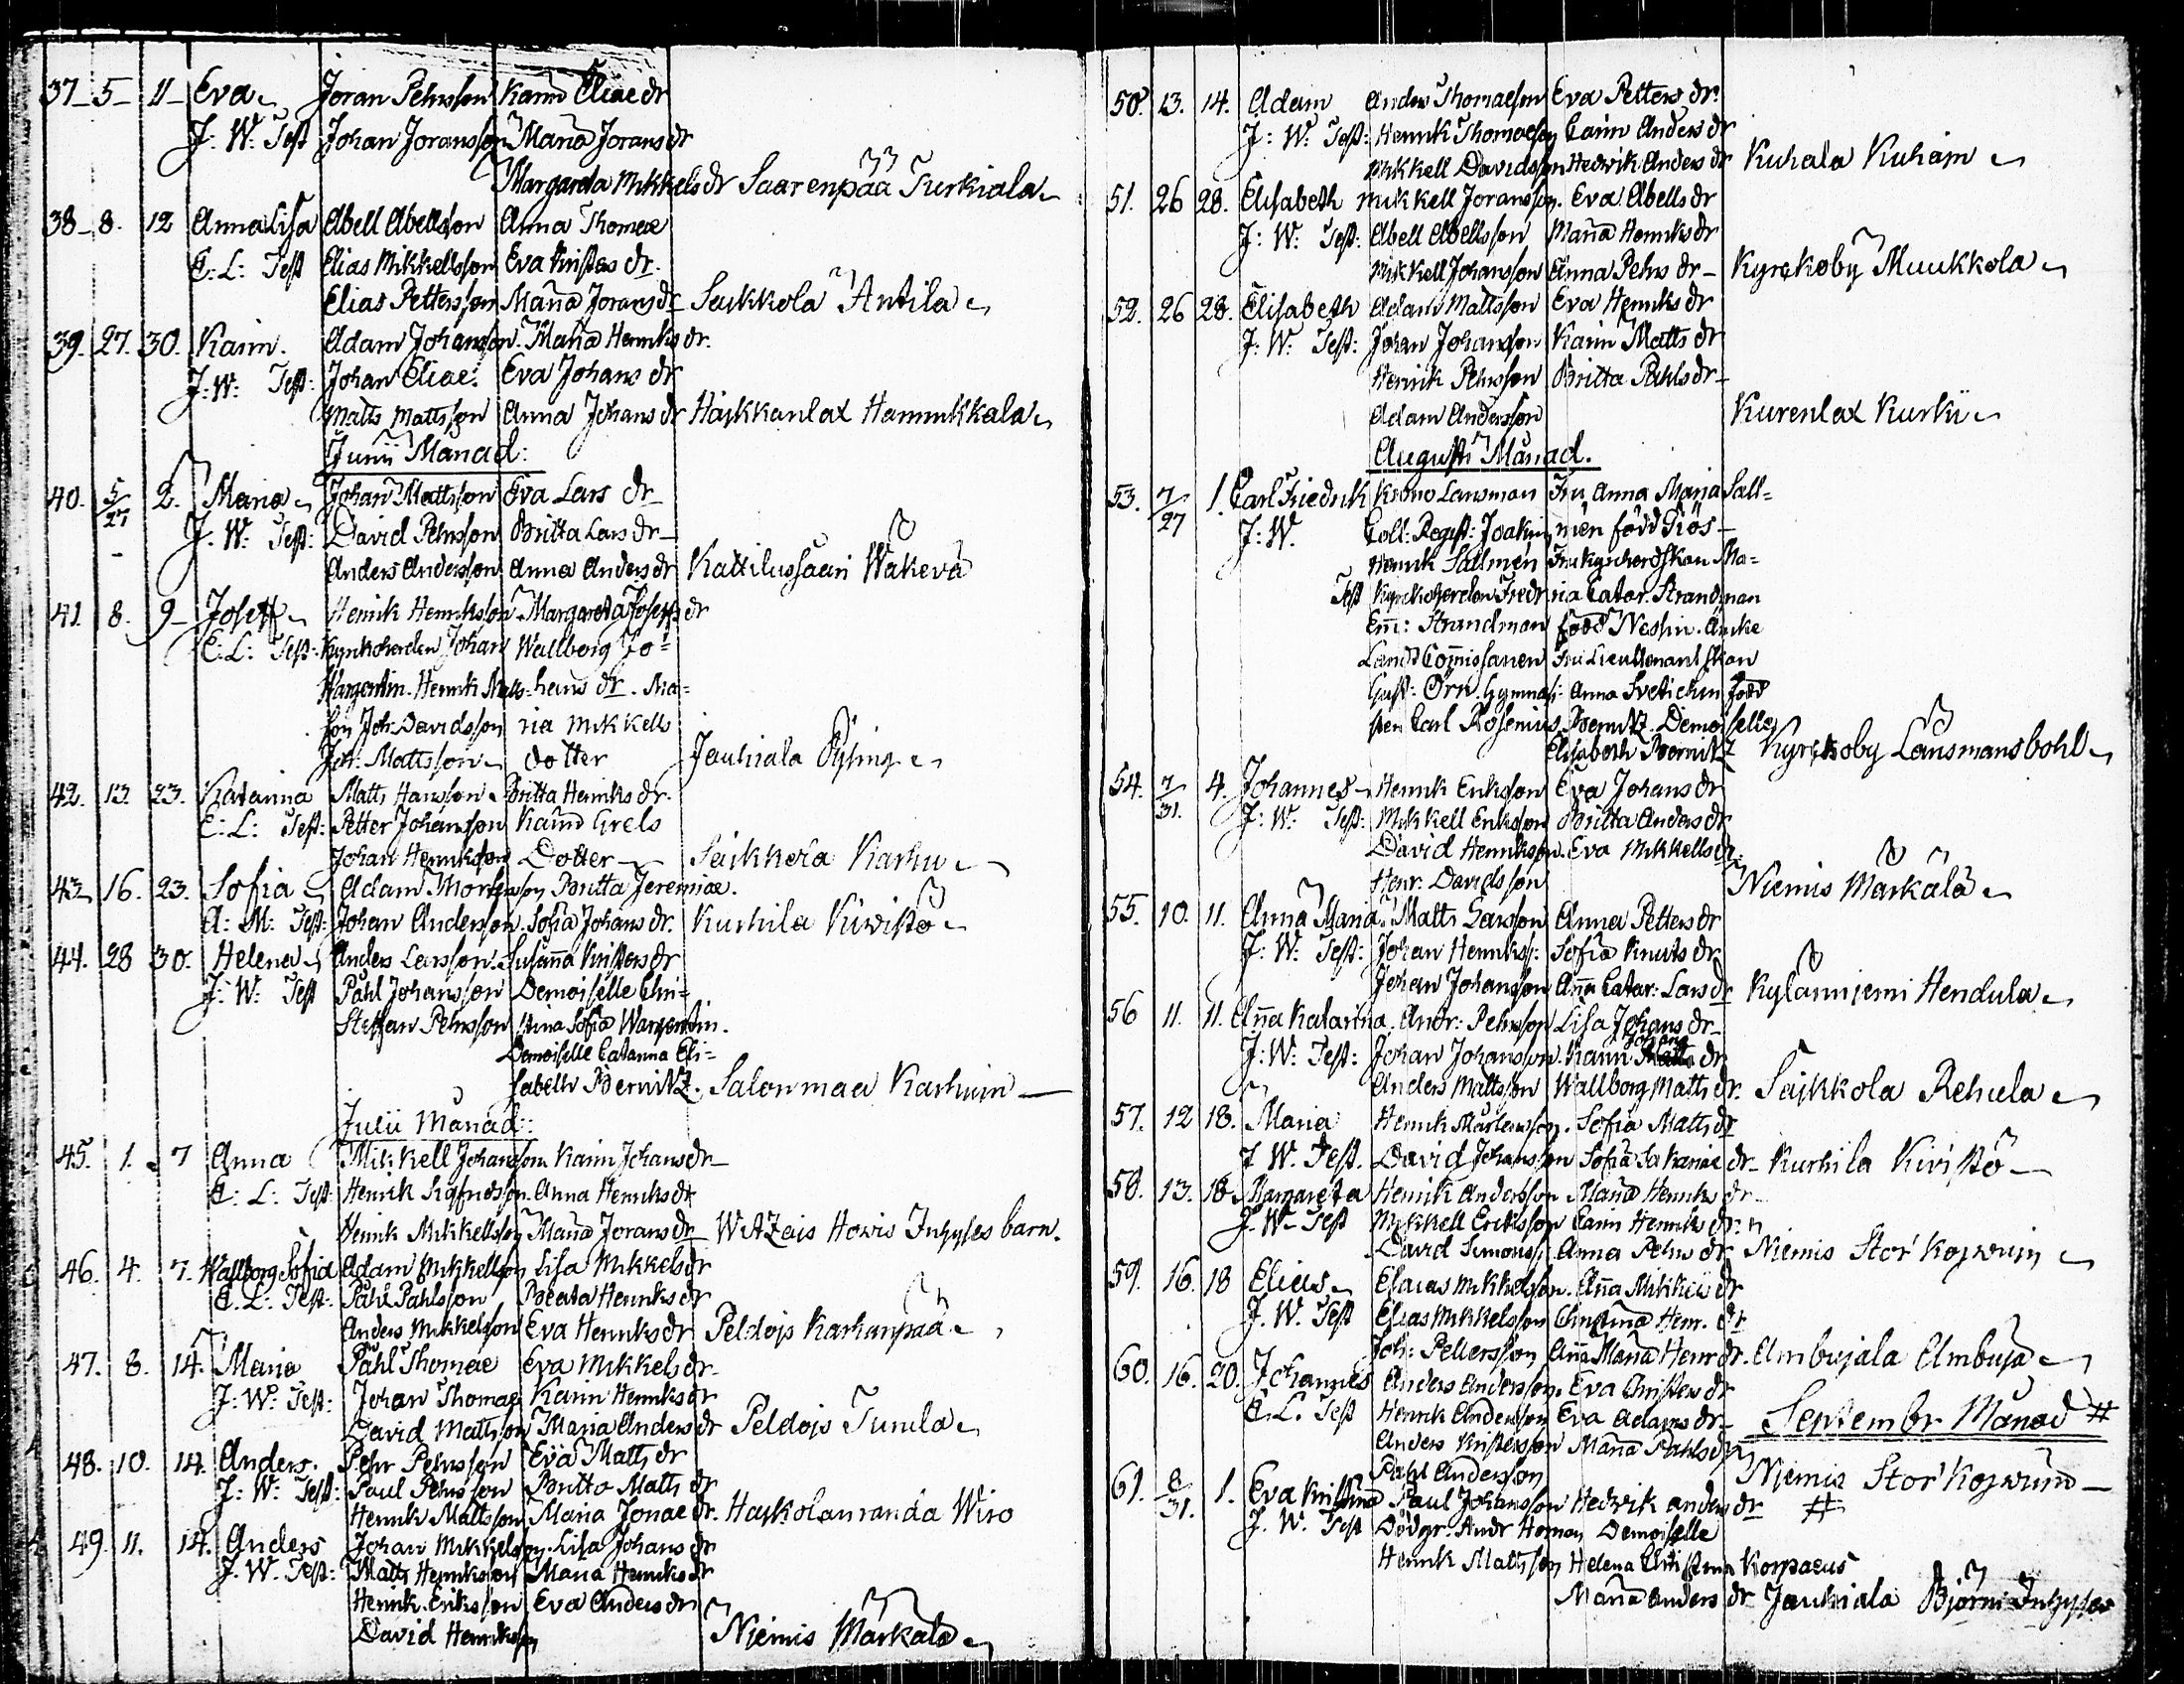 37 5 11 Eva Joran Pehrsson Karin Eliæ dr
J: W: Test Johan Joransson Maria Jorans dr
Margareta Mikkels dr Saarenpää Turkiala
38 8. 12 Anna Lisa Abell Abellsson Anna Thomæ
E: L: Test Elias Mikkellsson Eva Kristers dr
Elias Pettersson Maria Jorans dr Saikkola Antila
39. 27. 30. Karin. Adam Johansson. Maria Henriks dr.
J: W: Test: Johan Eliæ. Eva Johans dr
Matts Mattsson Anna Johans dr Haikkanlax Hamnikkala
Junii Månad:
40. 5/27 2. Maria Johan Mattsson Eva Lars dr
J. W: Test: David Pehrsson Britta Lars dr
Anders Andersson Anna Anders dr Kattilussaari Wäkevä
41. 8. 9 Joseff Henrik Henriksson Margareta Joseps dr
E: L: Test: Kyrkoherden Johan Wallborg Jo=
Wargentin. Henrik Matts= hans dr. Ma=
son Joh: Davidsson ria Mikkels
Joh: Mattsson dotter Jauhiala
42. 13. 23. Katarina Matts Hansson Britta Henriks dr.
E: L: Test: Petter Johansson Karin Grels
Johan Henriksson Dotter Karhu
43 16. 23. Sofia Adam Britta Jeremiæ.
A: M: Test: Johan Andersson. Sofia Johans dr. Kurhila Kiwistö
44. 28 30. Helena Anders Larsson. Susanna Kristers dr
J: W: Test Påhl Johansson Demoiselle Chri=
Steffan Pehrsson stina Sofia Wargentin.
Demoiselle Catarina Eli=
sabeth Bernitz. Salonmaa Karhuin
Julii Månad:
45. 1. 7 Anna Mikkell Johansson Karin Johans dr
E: L: Test: Henrik Sigfridsson. Anna Henriks dr
Henrik Mikkellsson Maria Jorans dr Howis Inhyses barn.
46. 4. 7. Wallborg Sofia Adam Mikkellsson Lisa Mikkels dr
E. L. Test: Påhl Påhlsson Beata Henriks dr
Anders Mikkelsson Eva Henriks dr Peldois Karhunpää
47. 8. 14. Maria Påhl Thomæ Eva Mikkels dr
J: W: Test: Johan Thomæ Karin Henriks dr
David Mattsson Maria Anders dr Peldois Tumla
48. 10. 14. Anders. Pehr Pehrsson Eva Matts dr
J: W: Test: Paul Pehrsson Britta Matts dr
Henrik Mattsson Maria Jonæ dr. Haikolanranda Wiro
49. 11. 14. Anders Johan Mikkelsson. Lisa Johans dr
J. W. Test: Matts Henriksson Maria Henriks dr
Henrik Eriksson Eva Anders dr
David Henriksson Niemis Märkälä
50. 13. 14. Adam Anders Thomæson Eva Petters dr.
J: W: Test: Henrik Thomæson Carin Anders dr
Mikkell Davidsson Hedvik Anders dr Kuhala Kuhain
51. 26 28. Elisabeth Mikkell Joransson. Eva Abells dr
J: W: Test: Abell Abellsson Maria Henriks dr
Mikkell Johansson Anna Pehrs dr Kyrckoby Muukkola
52. 26 28. Elisabeth Adam Mattsson Eva Henriks dr
J: W: Test: Johan Johansson Karin Matts dr
Henrik Pehrsson Britta Påhls dr
Adam Andersson Kurenlax Kurki
Augusti Månad.
53. 7/27 1. Carl Friedrik Krono Lansman Fru Anna Maria Sall=
J: W. Coll: Regist: Joakim men född Giös
Henrik Sallmén Fru Kyrkoherdskan Ma=
Test Kyrckoherden Fredr ria Catar. Strandman
Em: Strandman född Neslin. Encke
Lands Commissarien Fru Lieutenantskan
Gust: Örn. Gymnasi= Anna Svetichin född
sten Carl Rosenius Bernitz. Demoiselle
Elisabeth Bernitz Kyrckoby Länsmansbohl
54. 7/31. 4. Johannes Henrik Eriksson Eva Johans dr
J: W: Test: Mikkell Eriksson Britta Anders dr
David Henriksson. Eva Mikkells dr
Henr: Davidsson Niemis Märkälä
55. 10. 11. Anna Maria. Matts Larsson Anna Petters dr
J: W: Test: Johan Henrikss: Sofia Knuts dr
Johan Johansson Anna Catar: Lars dr Kylänniemi Hendula
56 11. 11. Anna Katarina. Andr: Pehrsson Lisa Johans dr
J: W: Test: Johan Johansson. Karin Johans dr
Anders Mattsson Wallborg Matts dr. Saikkola Rehula
57. 12 18. Maria Henrik Mårtensson. Sofia Matts dr
J W. Test. David Johansson Sofia Sakariæ dr Kurhila Kivistö
58. 13. 18. Margareta Henrik Andersson Maria Henriks dr
J. W Test Mikkell Eriksson Carin Henriks dr.
David Simonss: Anna Pehrs dr Niemis Stor Kojwuin
59. 16. 18 Elias Esaias Mikkelsson. Anna Mikkels dr
J. W. Test Elias Mikkelsson Christina Henr. dr
Joh: Pettersson Anna Maria Henr dr. Ambujala Ambuja
60. 16. 20. Johannes Anders Andersson. Eva Christers dr
E. L. Test Henrik Andersson Eva Adams dr Septembr Månad #
Anders Kristersson Maria Påhls dr
Påhl Andersson Niemis Stor Kojwuin
61. 8/31. 1. Eva Kristina Paul Johansson Hedvik Anders dr #
J. W. Test Dödgr: Andr Homan Demoiselle
Henrik Mattsson Helena Christina Korpaeus
Maria Anders dr Jauhiala Björni Inhyses